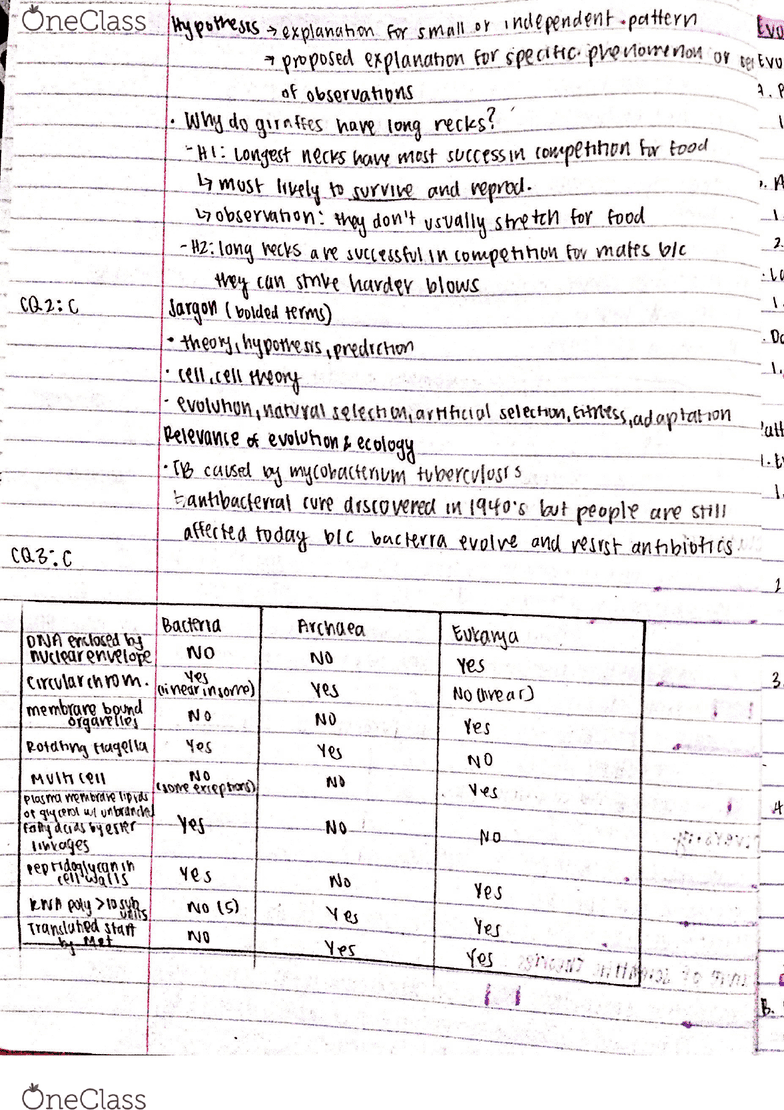 OneClass
Hypothesis → explanation for small or independent pattern
→ proposed explanation for specific phenomenon or
of observations
• Why do giraffes have long necks?
- H1: Longest necks have most success in competition for food
↳ most likely to survive and reprod.
↳ observation: they don't usually stretch for food
- H2: long necks are successful in competition for mates b/c
they can strike harder blows
CQ2: C
Jargon (bolded terms)
• theory, hypothesis, prediction
• cell, cell theory
• evolution, natural selection, artificial selection, fitness, adaptation
Relevance of evolution & ecology
• TB caused by mycobacterium tuberculosis
↳ antibacterial cure discovered in 1940's but people are still
affected today b/c bacteria evolve and resist antibiotics.
CQ3: C
Bacteria Archaea Eukarya
DNA enclosed by
nuclear envelope NO NO Yes
Circular chrom. Yes
(linear in some) Yes No (linear)
membrane bound
organelles NO NO Yes
Rotating flagella Yes Yes NO
Multi cell NO
(some exceptions) NO Yes
plasma membrane lipids
of glycerol w/ unbranched
fatty acids by ester
linkages Yes NO NO
peptidoglycan in
cell walls Yes No Yes
RNA poly >10 sub
units NO (5) Yes Yes
Translated start
by Met NO Yes Yes
OneClass